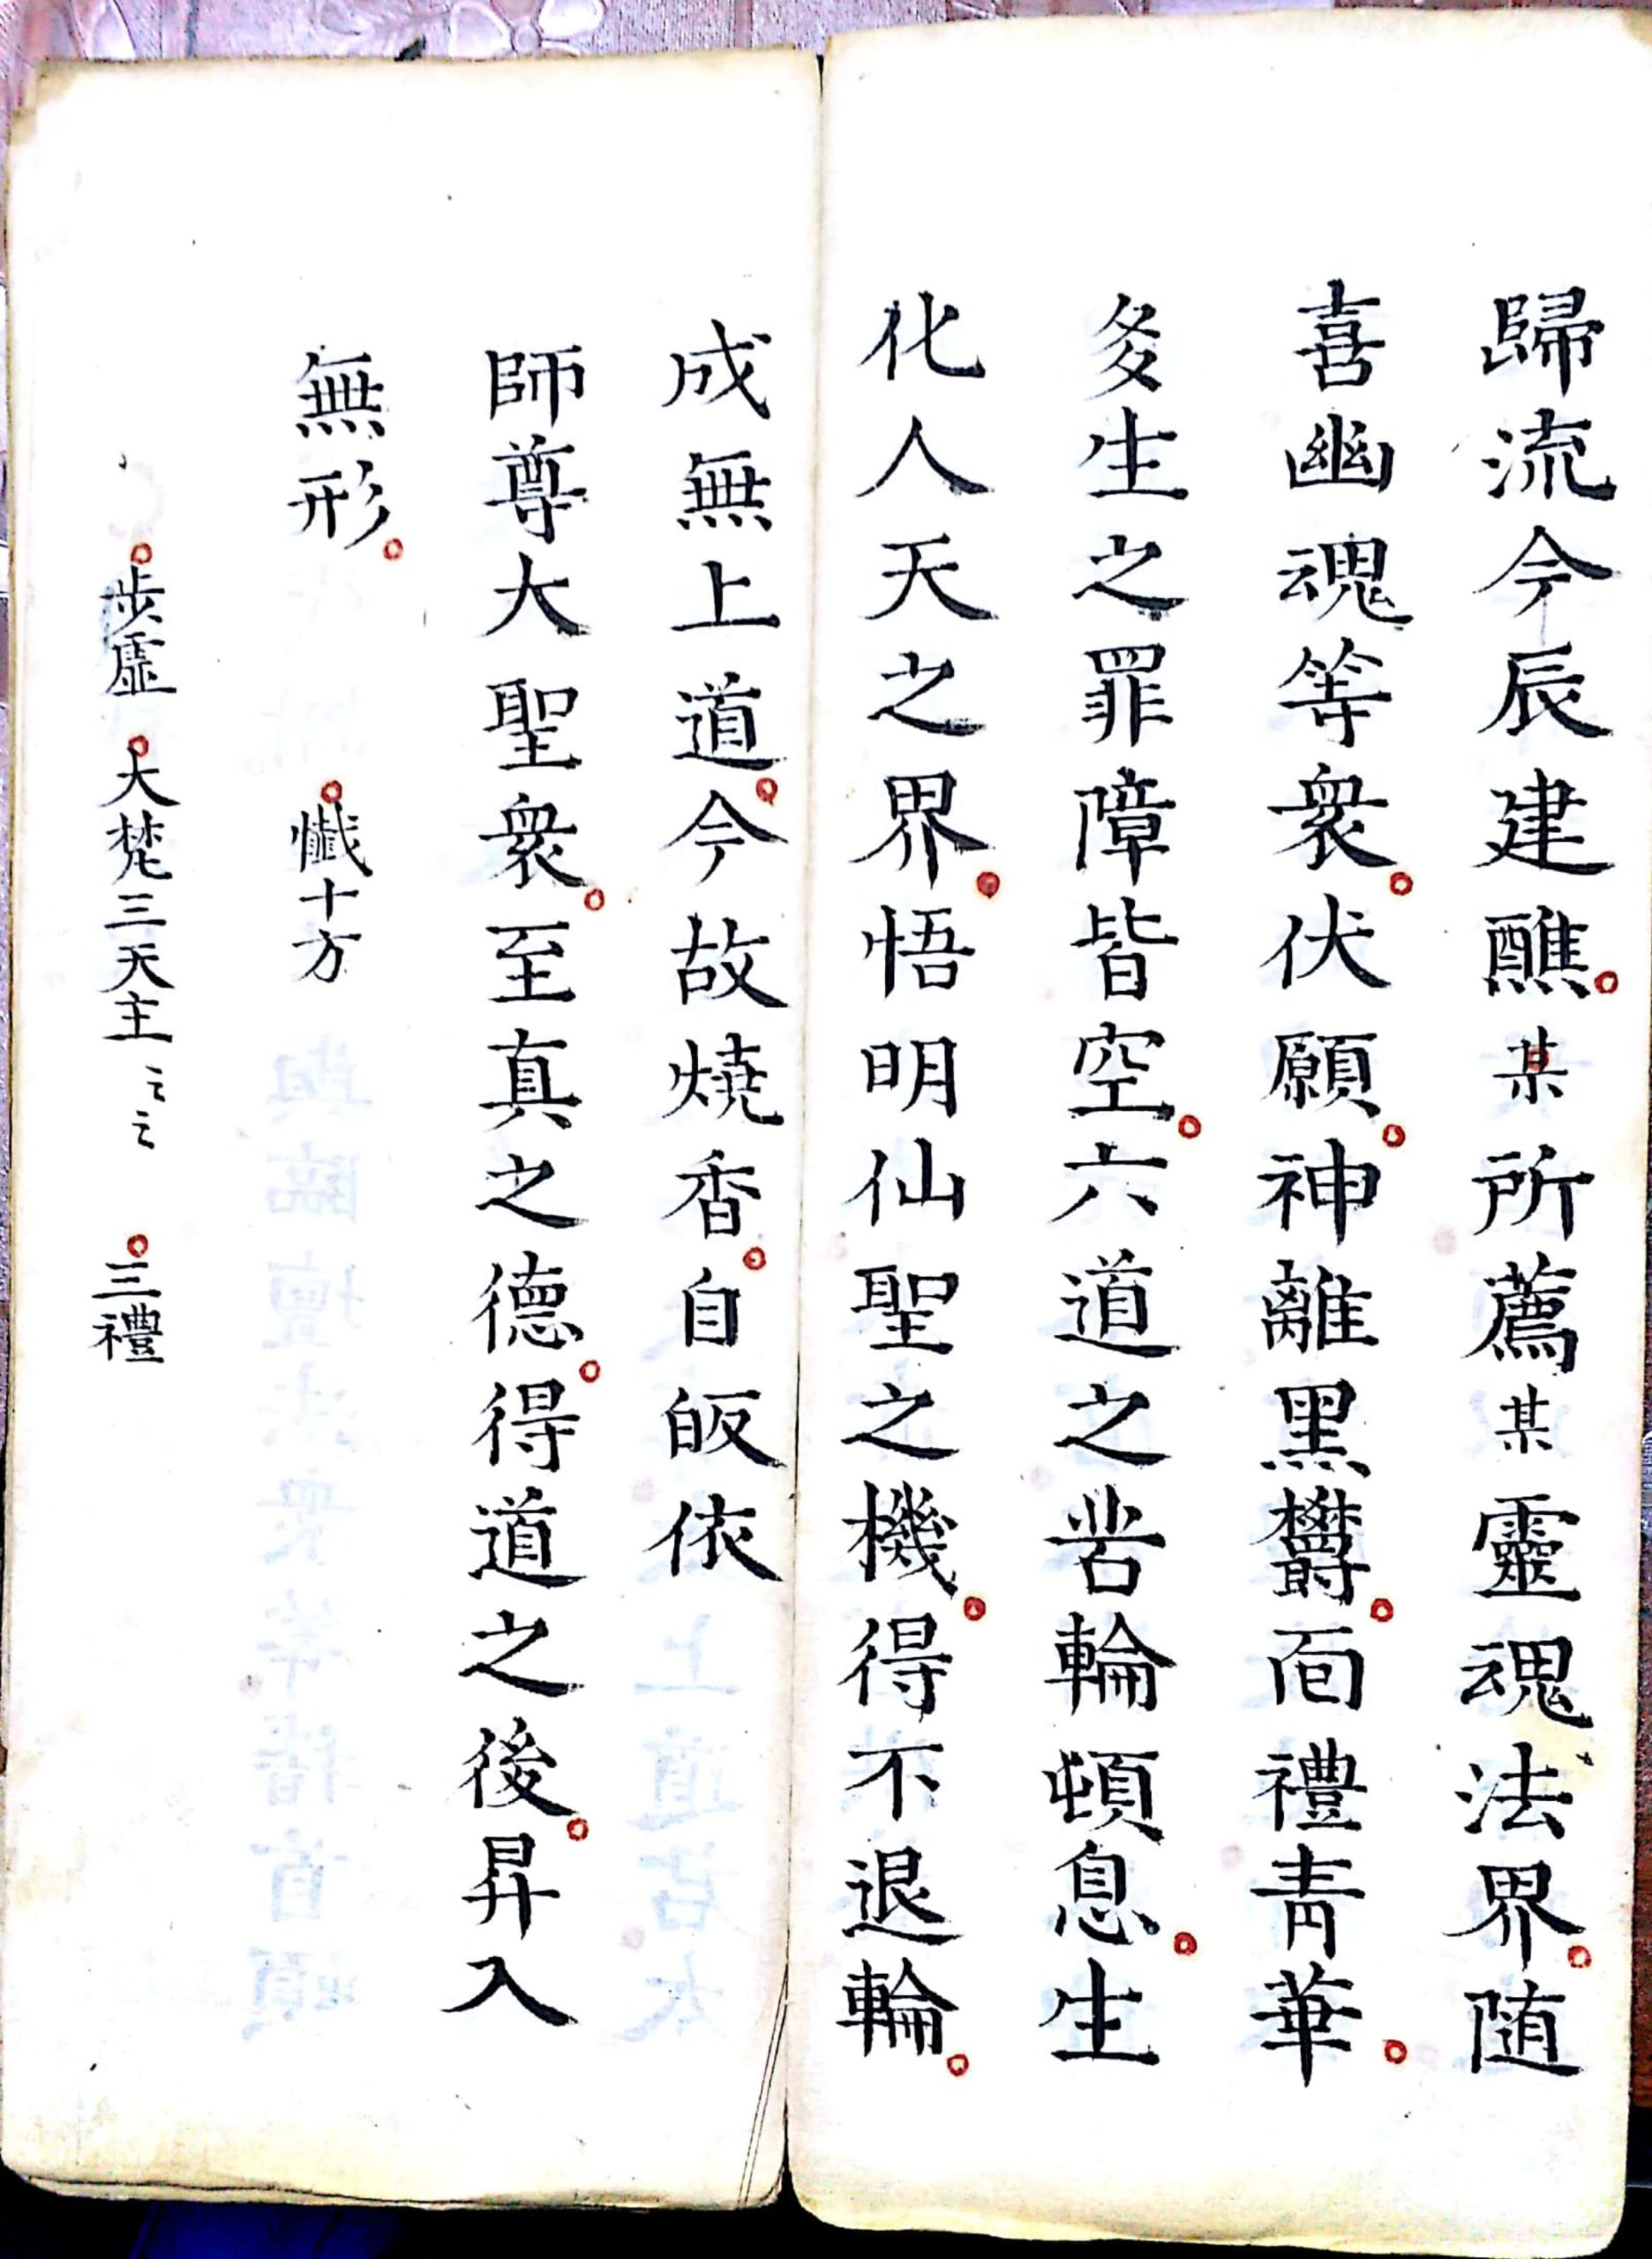 歸流今辰建醮某所薦某靈魂法界随
喜幽魂等衆伏願神離黑欝面禮青華
多生之罪障皆空六道之喾輪頓息生
化人天之界悟明仙聖之機得不退輪
成無上道今故燒香自皈依
師尊大聖衆至真之德得道之後昇入
無形 懺十方
步虛 大梵三天主〻〻 三禮